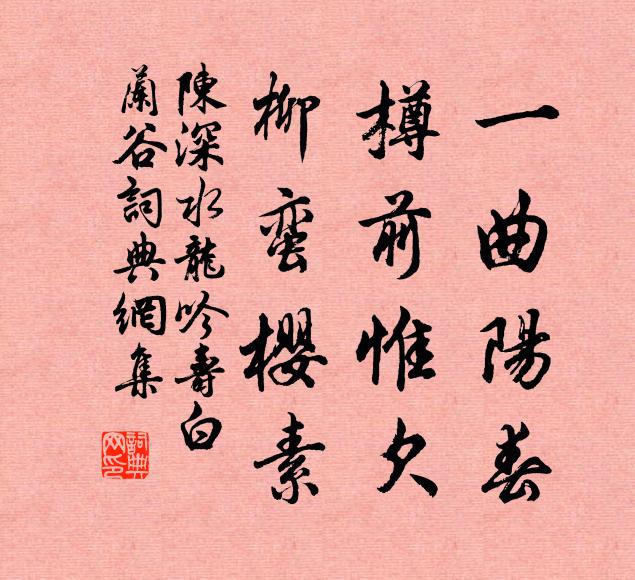 一曲陽春
樽前惟欠
柳蛮櫻素
陳深水龍吟壽白
蘭谷詞典網集
詞典网印